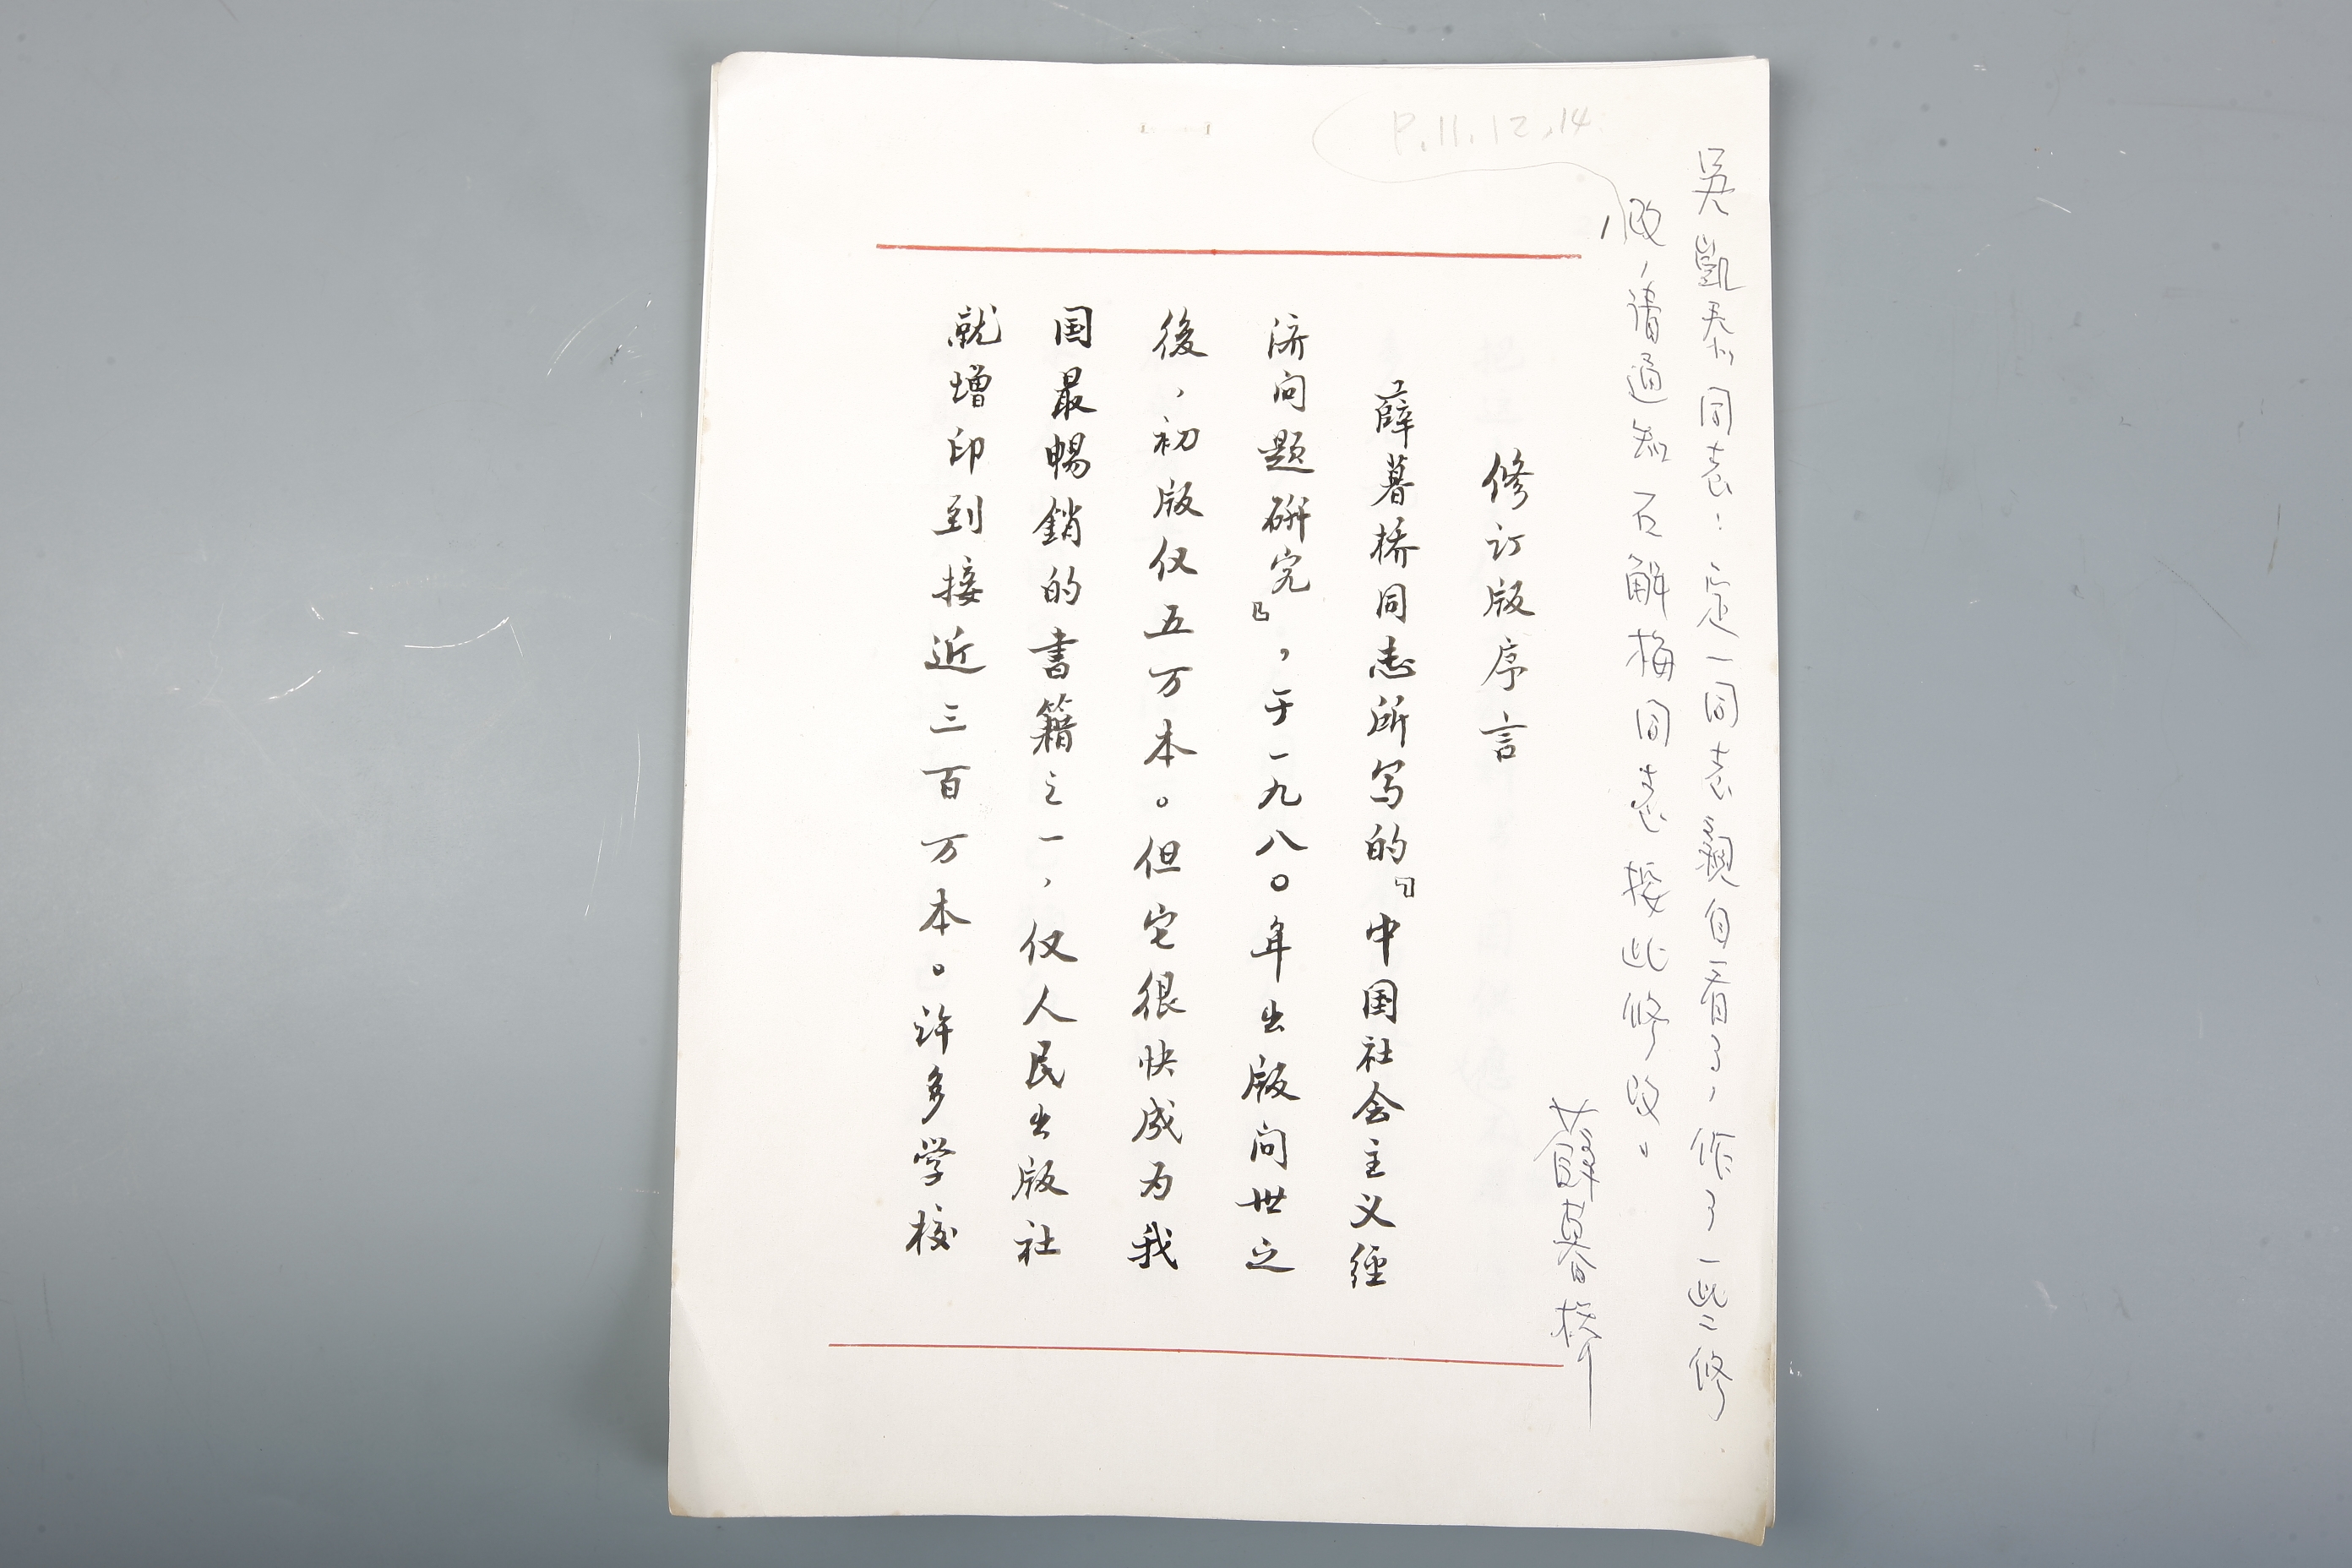 P.11.12.14
吴凯泰同志：定一同志亲自看了，作了一些修
改，请通知石解梅同志按此修改。
薛暮桥
修订版序言
薛暮桥同志所写的『中国社会主义经
济问题研究』，于一九八〇年出版问世之
後，初版仅五万本。但它很快成为我
国最畅銷的書籍之一，仅人民出版社
就增印到接近三百万本。许多学校